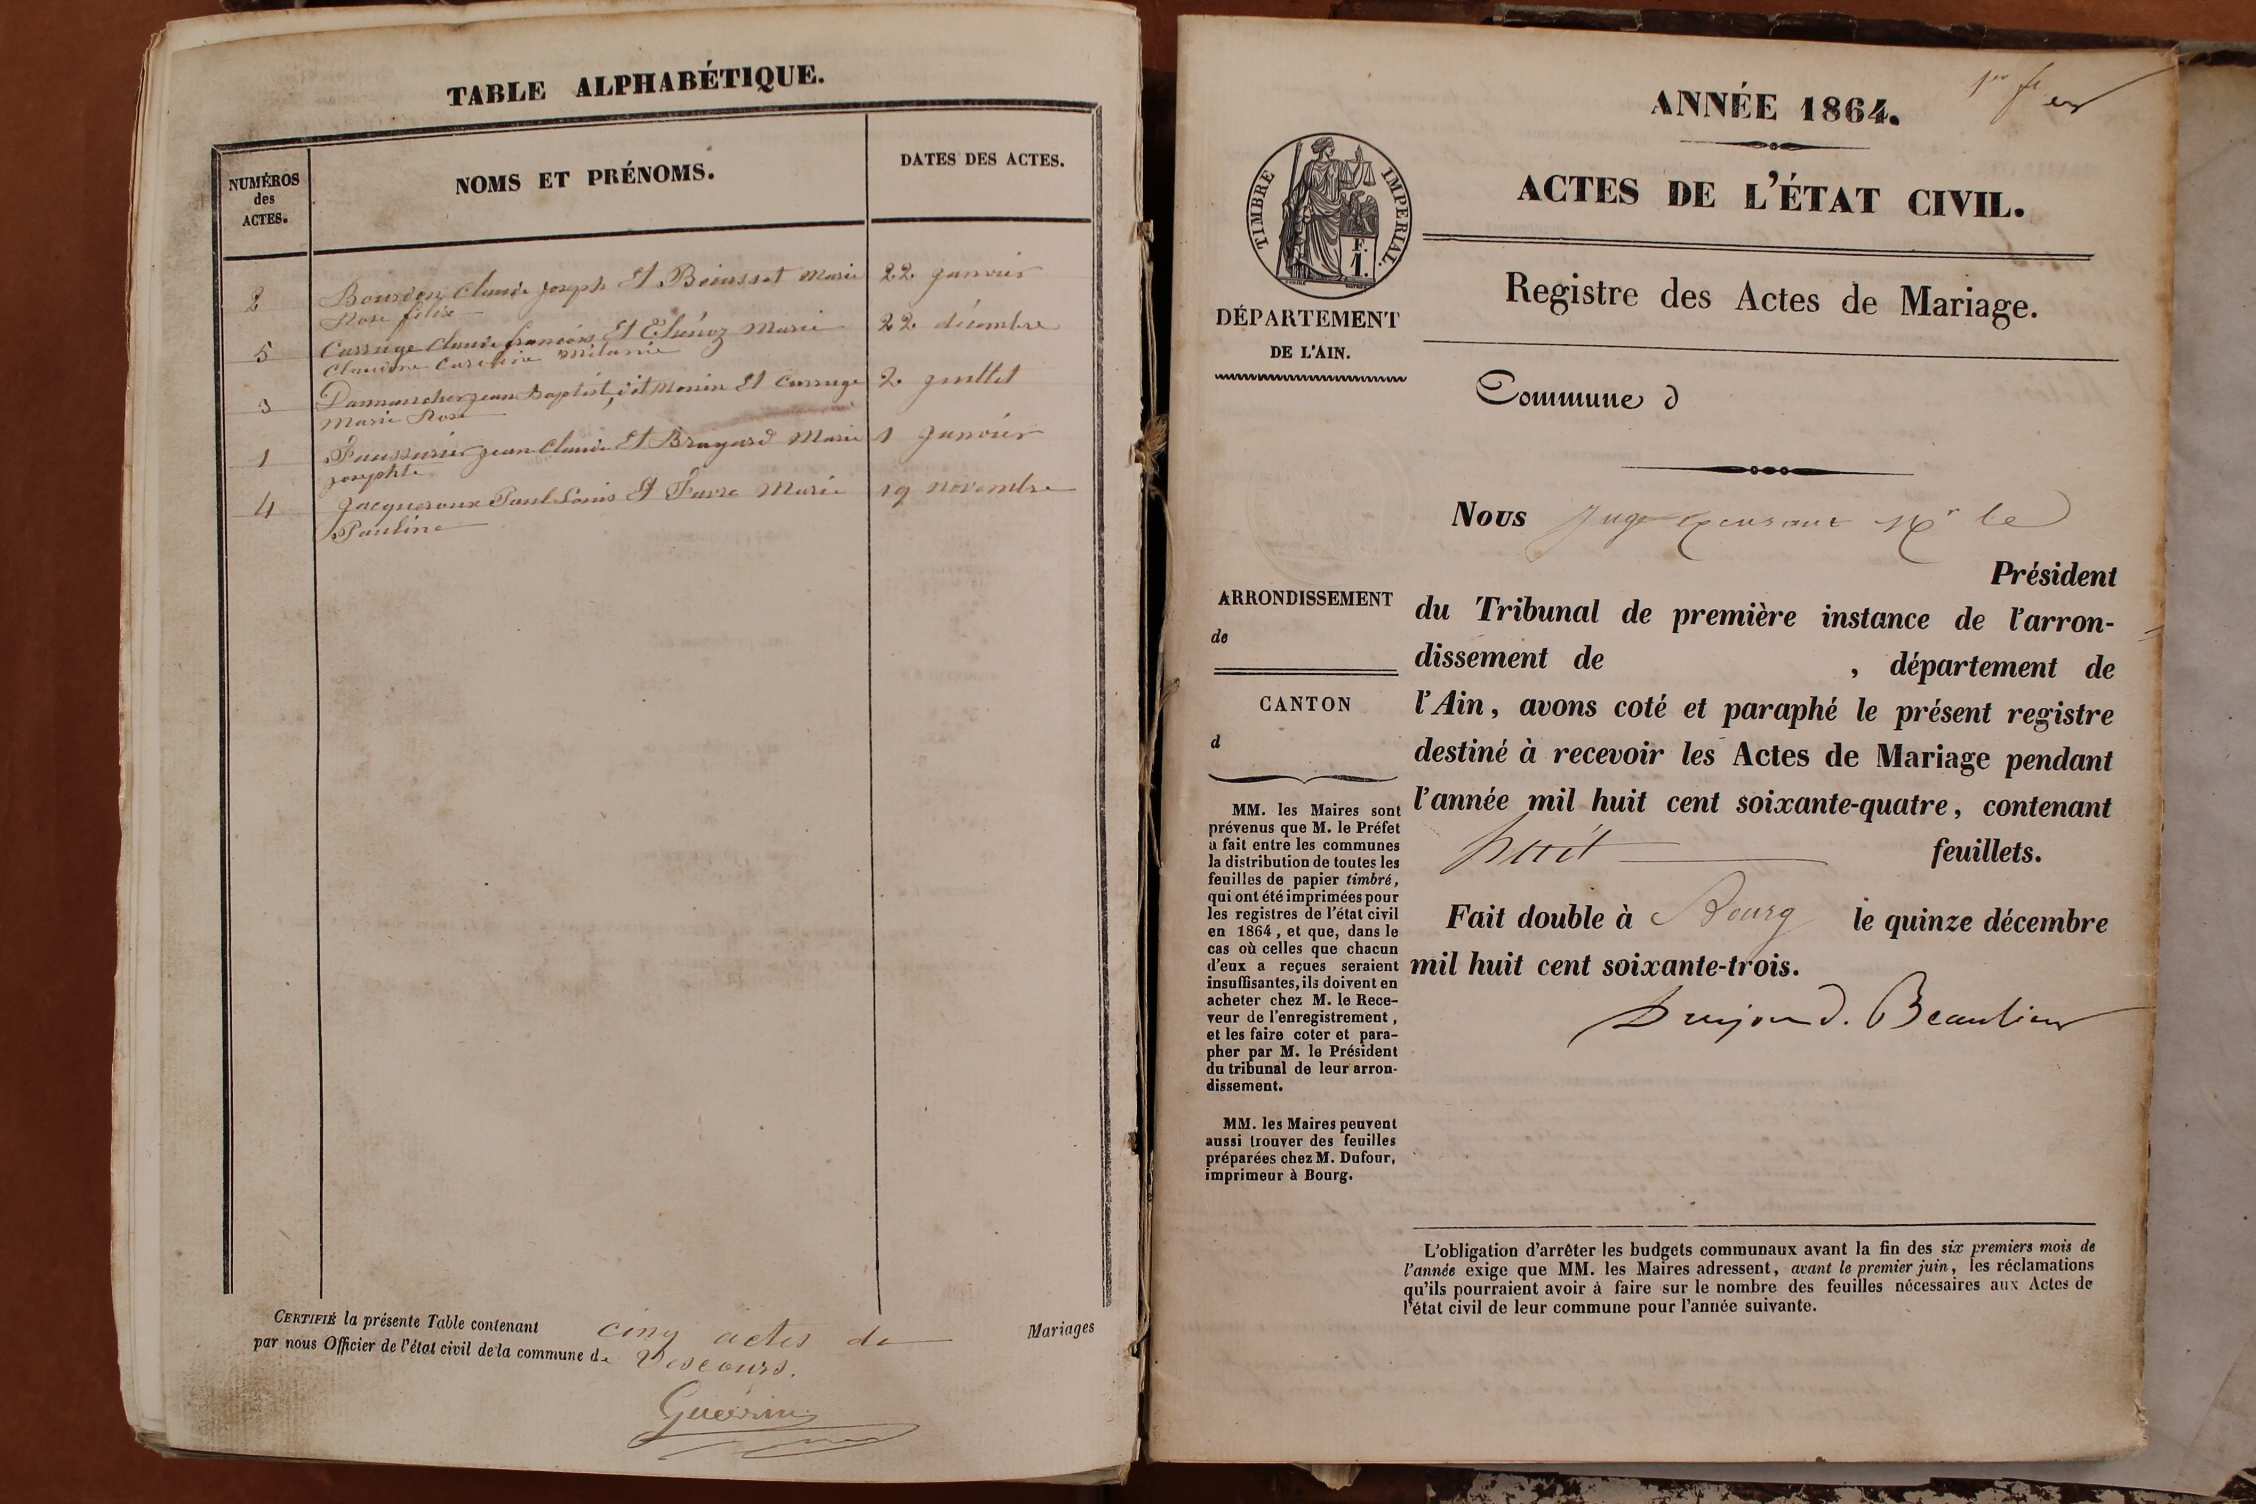 TABLE ALPHABÉTIQUE.
NUMÉROS
des
ACTES.
NOMS ET PRÉNOMS.
DATES DES ACTES.
2 Bourdon Claude Joseph Et Marie 22 janvier
Rose félix
5 Carruge Claude françois Et Marie 22 décembre
Claudine Caroline Mélanie
3 Jean Baptist, dit Monin Et Carruge 2 juillet
Marie Rose
1 Faussurier jean Claude Et Brayard Marie 1 janvier
josephte
4 Jacqueroux Paul Louis Et Favre Marie 19 novembre
Pauline
CERTIFIÉ la présente Table contenant cinq actes de Mariages
par nous Officier de l'état civil de la commune de Vescours.
Guérin
1er ft
ANNÉE 1864.
ACTES DE L'ÉTAT CIVIL.
TIMBRE IMPERIAL.
F.
1.
Registre des Actes de Mariage.
DÉPARTEMENT
DE L'AIN.
Commune d
Nous Juge Mr le
Président
ARRONDISSEMENT
de
CANTON
d
du Tribunal de première instance de l'arron-
dissement de , département de
l'Ain, avons coté et paraphé le présent registre
destiné à recevoir les Actes de Mariage pendant
l'année mil huit cent soixante-quatre, contenant
huit feuillets.
Fait double à Bourg le quinze décembre
mil huit cent soixante-trois.
Beaulieu
MM. les Maires sont
prévenus que M. le Préfet
a fait entre les communes
la distribution de toutes les
feuilles de papier timbré,
qui ont été imprimées pour
les registres de l'état civil
en 1864, et que, dans le
cas où celles que chacun
d'eux a reçues seraient
insuffisantes, ils doivent en
acheter chez M. le Rece-
veur de l'enregistrement,
et les faire coter et para-
pher par M. le Président
du tribunal de leur arron-
dissement.
MM. les Maires peuvent
aussi trouver des feuilles
préparées chez M. Dufour,
imprimeur à Bourg.
L'obligation d'arrêter les budgets communaux avant la fin des six premiers mois de
l'année exige que MM. les Maires adressent, avant le premier juin, les réclamations
qu'ils pourraient avoir à faire sur le nombre des feuilles nécessaires aux Actes de
l'état civil de leur commune pour l'année suivante.